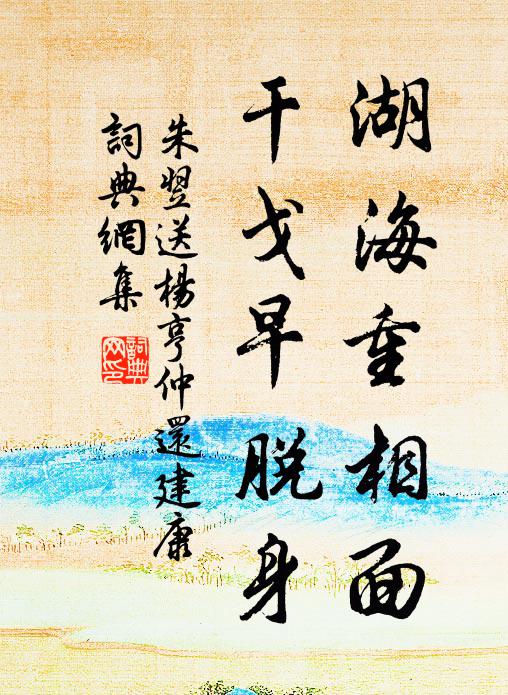 湖海重相面
干戈早脱身
朱翌送楊亨仲還建康
詞典網集
詞典网印